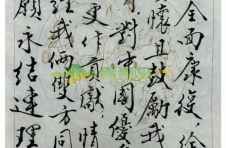 全面康復給
懷且鼓勵我
對中國優秀
更作貢獻情
經我倆雙方同
願永結連理